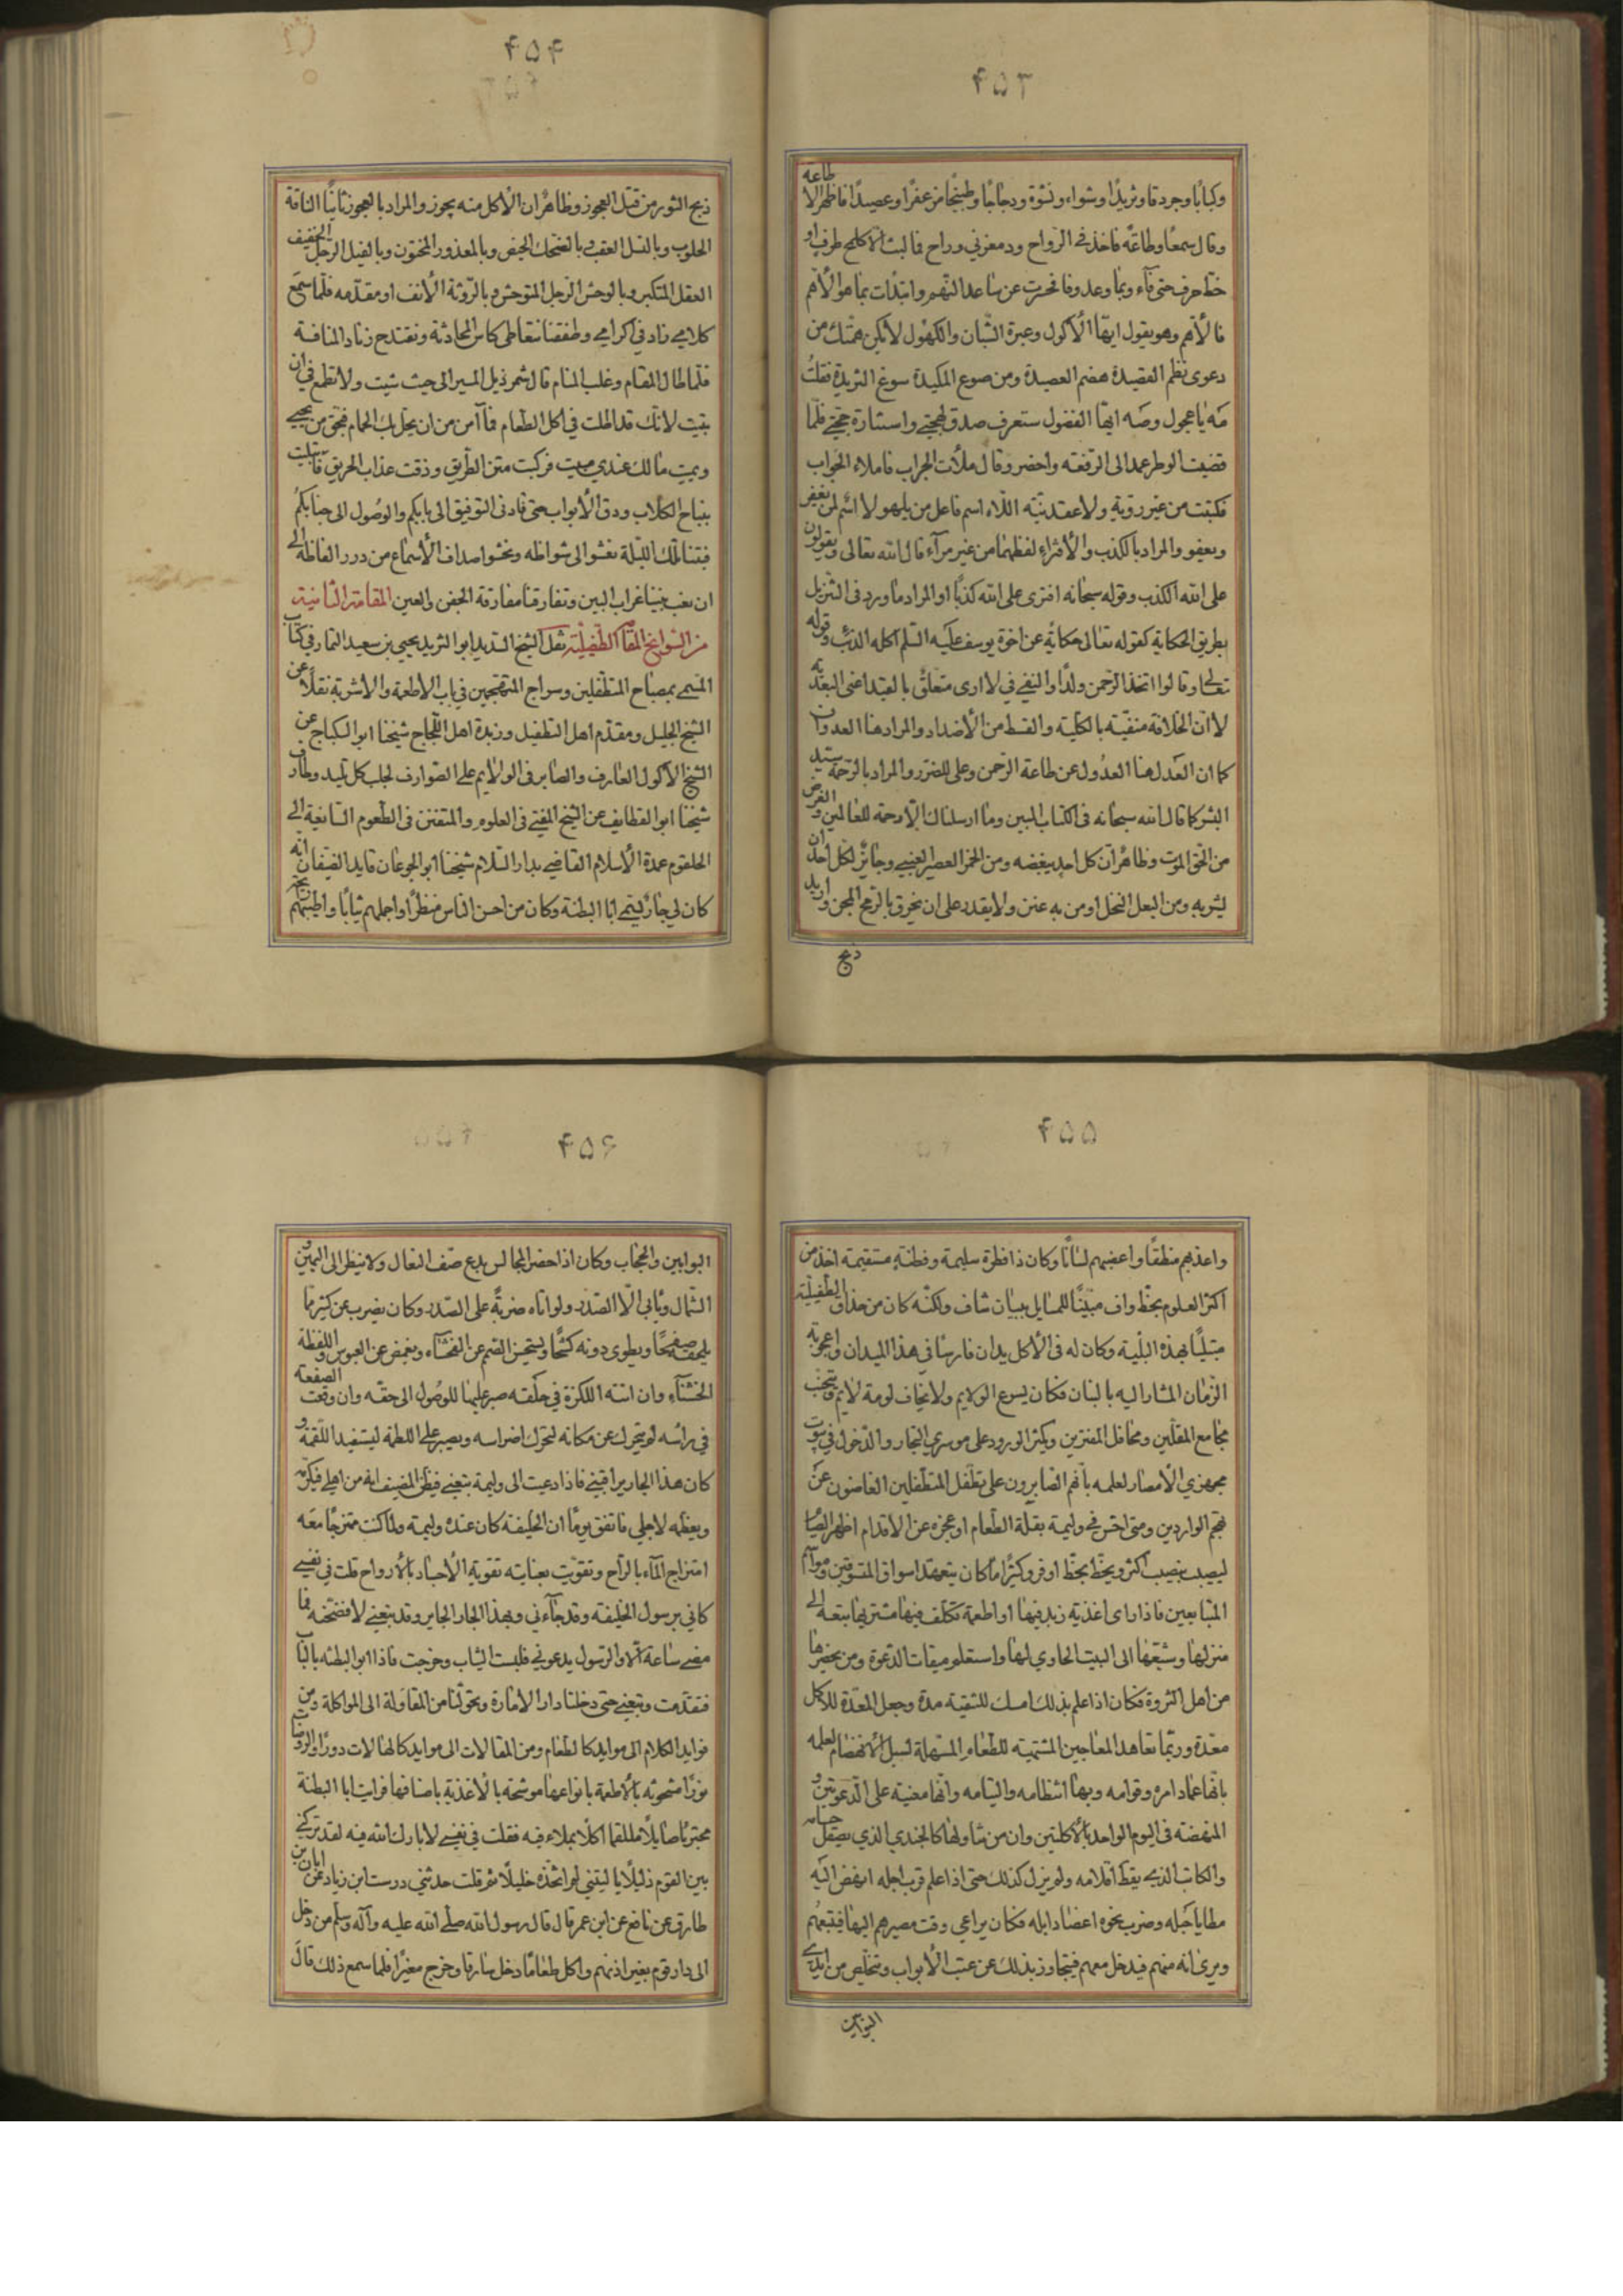 ۴۵۳
وكبابًا وجردقا وثريدًا وشواء ونشوة ودجاجًا وطبيخًا مزعفرًا وعصيدًا فاظهر الا طاعه
وقال سمعًا وطاعةً فاخذ في الرواح ودمعزني وراح فما لبث الا كلمح طرف او
خط حرف حتى فآء وبما وعد وفا فحسرت عن ساعد النهم وابتدات بما هو الأهم
فالأهم وهو يقول ايها الأكول وعبرة الشبان والكهول لا تكن همتك من
دعوى نظم القصيدة هضم العصيدة ومن صوغ المكيدة سوغ الثريدة فقلت
مه يا عجول وصه ايها الفضول ستعرف صدق لهجتي واستنارة حجتي فلما
قضيت الوطر عمد الى الرقعة واحضر وقال ملأت الجراب فاملاء الجواب
فكتبت من غير روية ولا عقد نية اللاء اسم فاعل من يلهو لا اثم لمن يغفر
ويعفو والمراد بالكذب والأفتراء لفظهما من غير مرآء قال الله تعالى ويقولون
على الله الكذب وقوله سبحانه افترى على الله كذبًا او المراد ما ورد في التنزيل
بطريق الحكاية كقوله تعالى حكاية عن اخوة يوسف عليه السلم اكله الذئب وقوله
تعالى وقالوا اتخذ الرحمن ولدًا والنفي في لا ارى متعلق بالقيد اعنى البعدية
لا ان الخلافة منفية بالكلية والقسط من الأضداد والمراد هنا العدوان
كما ان العدل هنا العدول عن طاعة الرحمن وعلى للضرر والمراد بالرحمة سيد
البشر كما قال الله سبحانه في الكتاب المبين وما ارسلناك الا رحمة للعالمين والغرض
من الحق الموت وظاهر ان كل احد يبغضه ومن الخمر العصير العنبي وجائز لكل احد ان
يشربه ومن البعل النخل او من به عنن ولا يقدر على ان يخرق بالرمح المجن واريد
ذبح
۴۵۴
ذبح الثور من قبل العجوز وظاهر ان الأكل منه يجوز والمراد بالعجوز ثانيًا الناقة
الحلوب وبالنسل العقب وبالضحك الحيض وبالمعذور المختون وبالفيل الرجل الخفيف
العقل المتكبر وبالوحش الرجل المتوحش وبالروثة الأنف او مقدمه فلما سمع
كلامي زاد في اكرامي وطفقنا نتعاطى كاس المحادثة ونقتدح زناد المنافسة
فلما طال المقام وغلب المنام قال شمر ذيل المسير الى حيث شئت ولا تطمع في ان
تبيت لانك قد اطلت في اكل الطعام فما آمن من ان يحل بك الحمام فحق من يحيي
ويميت مالك عندي مبيت فركبت متن الطريق وذقت عذاب الحريق فابتليت
بنباح الكلاب ودق الأبواب حتى قادني التوفيق الى بابكم والوصول الى جنابكم
فبتنا تلك الليلة نعشوا الى شواظه ونحشوا صداف الأسماع من درر الفاظه الى
ان نعب بيننا غراب البين وتفارقنا مفارقة الجفن والعين المقامة الثانية
من السوانح المقامة الطفيلية نقل الشيخ السديد ابو الثريد يحيى بن سعيد التمار في كتاب
المسمى بمصباح المتطفلين وسراج المتهجمين في باب الأطعمة والأشربة نقلًا عن
الشيخ الجليل ومقدم اهل التطفيل وزبدة اهل اللجاج شيخنا ابو السكباج عن
الشيخ الأكول العارف والصابر في الولايم على الصوارف لجلب كل تليد وطارف
شيخنا ابو القطايف عن الشيخ المفتي في العلوم والمتفنن في الطعوم السائغة الى
الحلقوم عمدة الأسلام القاضي بدار السلام شيخنا ابو الجوعان قايد الضيفان انه
كان لي جار يسمى ابا البطنة وكان من احسن الناس منظرًا واجملهم ثيابًا واطيبهم ريحًا
۴۵۵
واعذبهم منطقًا واعضبهم لسانًا وكان ذا فطرة سليمة وفطنة مستقيمة اخذ من
اكثر العلوم بحظ واف مبينًا للمسايل ببيان شاف ولكنه كان من حذاق الطفيلية
مبتليًا بهذه البلية وكان له في الأكل يدان فارسًا في هذا الميدان واعجوبة
الزمان المشار اليه بالبنان فكان يسرع الولايم ولا يخاف لومة لايم ويتجنب
مجامع المقلين ومحافل المفترين ويكثر الورود على موسري التجار والدخول في بيوت
مجهزي الأمصار لعلمه بأنهم الصابرون على تطفل المتطفلين الغاضون عن
تهجم الواردين ومتى احس في وليمة بقلة الطعام او عجزه عن الاقدام اظهر الصيام
ليصيب بنصيب اكثر ويحظ بحظ اوفر وكثيرًا ما كان يتعهد اسواق المتسوقين ومواسم
المتبايعين فاذا راى اغذية زيد فيها او اطعمة تكلف فيها مشتريها تبعه الى
منزلها وشيعها الى البيت الحاوي لها واستعلم ميقات الدعوة ومن يحضرها
من اهل الثروة فكان اذا علم بذلك امسك للتنقية مدة وجعل المعدة للاكل
معدة وربما تعاهد المعاجين المشهية للطعام المسهلة لسبل الانهضام لعلمه
بانها عماد امره وقوامه وبها انتظامه والتيامه وانها معنية على الدعوتين و
المنهضة في اليوم الواحد بالأكلتين وان من شاولها كالجندي الذي يصقل حسامه
والكاتب الذي يقط اقلامه ولم يزل كذلك حتى اذا علم قرب اجله انهض اليه
مطايا حيله وضرب نحوه اعضاد ابله فكان يراعي وقت مصيرهم اليها فيتبعهم
ويرى انه منهم فيدخل معهم فيتجاوز بذلك عن عتب الأبواب ويتخلص من ايدي
البوابين
۴۵۶
البوابين والحجاب وكان اذا حضر المجالس يدع صف النعال ولا ينظر الى اليمين و
الشمال ويأبى الا الصدر ولو اتاه ضربة على الصدر وكان يضرب عن كثير مما
يلحقه صفحًا ويطوى دونه كشحًا ويستحسن الصمم عن الفحشاء ويغمض عن العبوس واللفظة
الخشنآء وان اتته اللكزة في حلقه صبر عليها للوصول الى حقه وان وقعت الصفعة
في رأسه لم يتحرك عن مكانه لتحرك اضراسه ويصبر على اللطمة ليستفيد اللقمة و
كان هذا الجار يراقبني فاذا دعيت الى وليمة يتبعني فيظن المضيف انه من اهلي فيكرمه
ويعظمه لاجلي فاتفق يومًا ان الخليفة كان عنده وليمة ولما كنت ممتزجًا معه
امتزاج المآء بالراح وتقويت بعنايته تقوية الأجساد بالأرواح قلت في نفسي
كاني برسول الخليفة وقد جآءني وبهذا الجار الجاير وقد يتبعني لافضحنه فما
مضى ساعة الا والرسول يدعوني فلبست الثياب وخرجت فاذا ابو البطنة بالباب
فتقدمت وتبعني حتى دخلنا دار الامارة وتحولنا من المقاولة الى المواكلة ومن
فوايد الكلام الى موايد كالطعام ومن المقالات الى موايد كالهالات دورًا والروضات
نورًا مشحونة بالأطعمة بانواعها موشحة بالأغذية باصنافها فرايت ابا البطنة
مجتريًا صايلًا ملتقمًا اكلا بملاء فيه فقلت في نفسي لا بارك الله فيه لقد تركني
بين القوم ذليلًا يا ليتني لم اتخذه خليلًا ثم قلت حدثني درست ابن زياد عن ابان بن
طارق عن نافع عن ابن عمر قال قال رسول الله صلى الله عليه وآله وسلم من دخل
الى دار قوم بغير اذنهم واكل طعامًا دخل سارقا وخرج مغيرًا فلما سمع ذلك قال